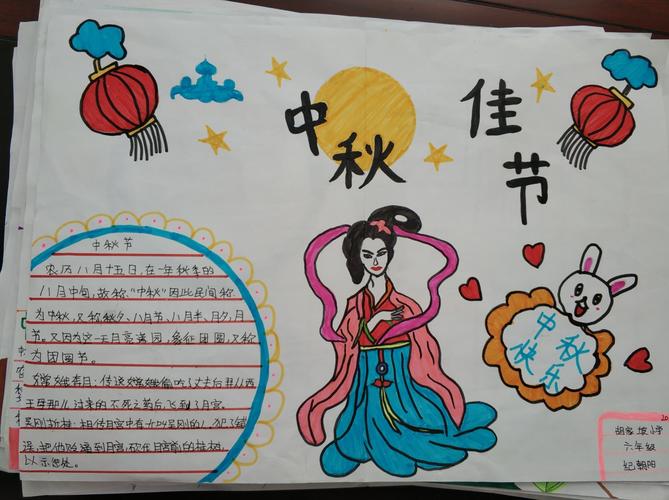 中秋
佳节
中秋节
农历八月十五日,在一年秋季的
八月中旬,故称"中秋"因此民间称
为中秋,又称秋夕、八月节、八月半、月夕,月
节。又因为这一天月亮满圆,象征团圆,又称
为团圆节。
嫦娥奔月:传说嫦娥偷吃了丈夫后羿从西
王母那儿过来的不死之药后,飞到了月宫。
吴刚折桂:相传月宫中有个叫吴刚的人,犯了错
误,把他贬遇到月宫,砍伐月宫前的桂树,
以示惩处。
中秋
快乐
20
胡家坡小学
六年级
纪朝阳